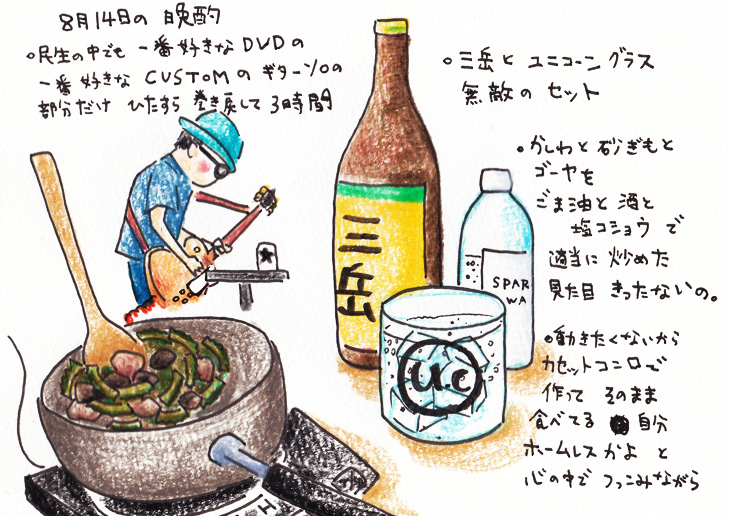 8月14日の 晩酌
○民生の中でも 一番好きなDVDの
一番好きな CUSTOMの ギターソロの
部分だけ ひたすら 巻き戻して 3時間
○三岳と ユニコーン グラス
無敵の セット
○かしわと 砂ぎもと
ゴーヤを
ごま油と 酒と
塩コショウ で
適当に 炒めた
見た目 きったないの。
○動きたくないから
カセットコンロで
作って そのまま
食べてる 自分
ホームレスかよ と
心の中で つっこみながら
三岳
SPAR
WA
U.C